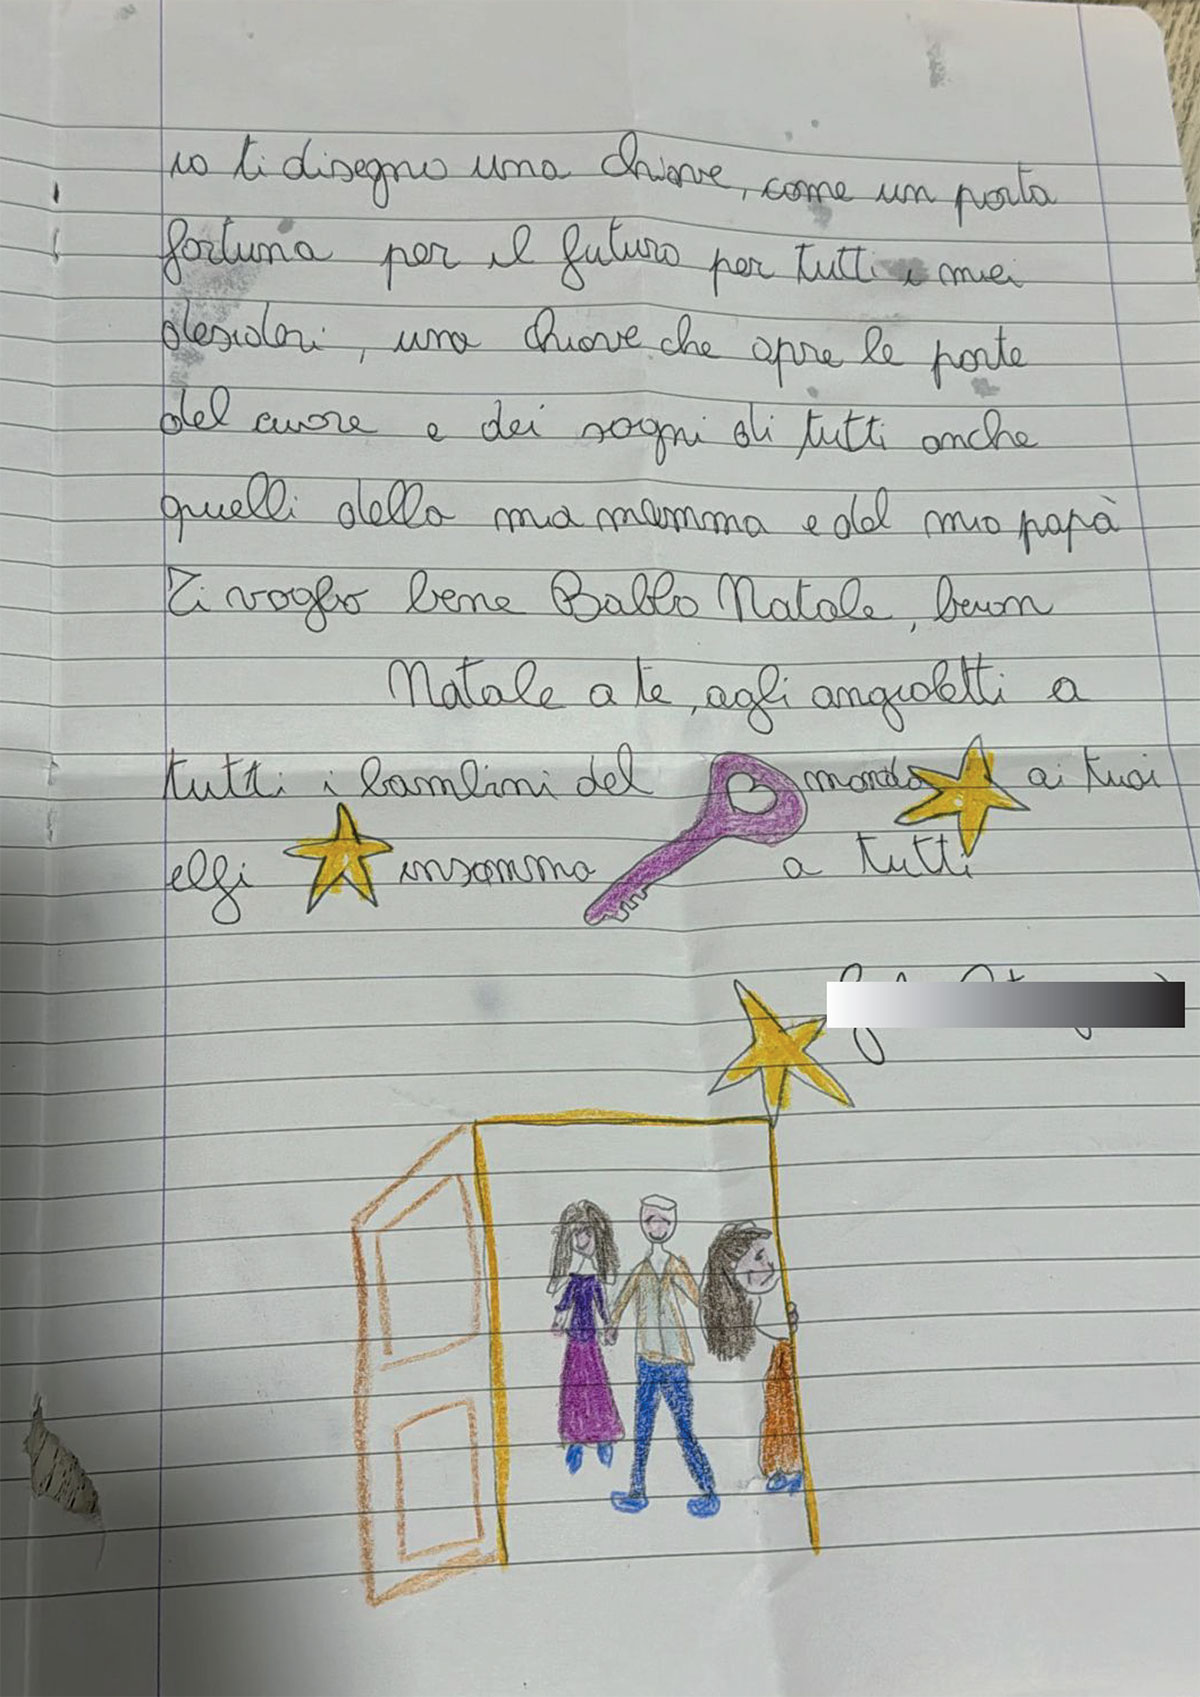 io ti disegno una chiave, come un porta
fortuna per il futuro per tutti i miei
desideri, una chiave che apre le porte
del cuore e dei sogni di tutti anche
quelli della mia mamma e del mio papà
Ti voglio bene Babbo Natale, buon
Natale a te, agli angioletti a
tutti i bambini del mondo ai tuoi
elfi insomma a tutti